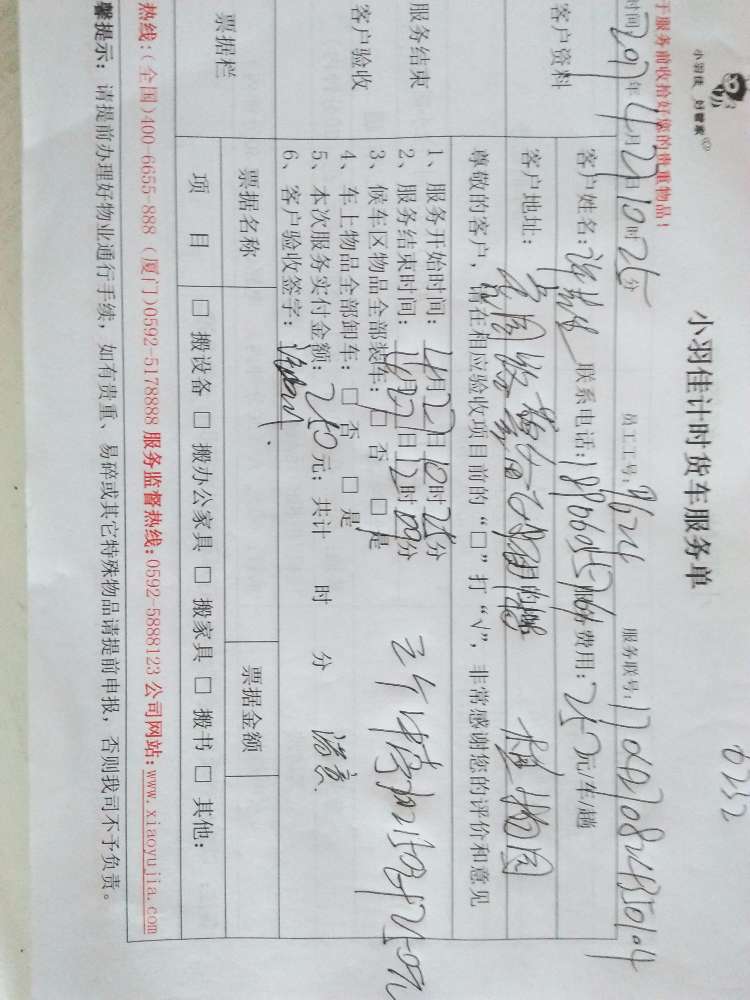 0232
小羽佳 好管家
小羽佳计时货车服务单
于服务前收拾好您的贵重物品！
时间 2017年4月27日10时25分 员工工号：9624 服务联号：
客户资料 客户姓名： 联系电话： 服务费用：250元/车/趟
客户地址： 植物园
尊敬的客户，请在相应验收项目前的“□”打“√”，非常感谢您的评价和意见
服务结束
客户验收
1、服务开始时间：4月27日10时25分
2、服务结束时间：4月27日12时09分
3、候车区物品全部装车：□否 □是
4、车上物品全部卸车：□否 □是
5、本次服务实付金额：250元；共计 时 分 满意
6、客户验收签字：
票据栏 票据名称 票据金额
项目 □搬设备 □搬办公家具 □搬家具 □搬书 □其他：
热线：(全国)400-6655-888 (厦门)0592-5178888 服务监督热线：0592-5888123 公司网站：www.xiaoyujia.com
馨提示：请提前办理好物业通行手续，如有贵重、易碎或其它特殊物品请提前申报，否则我司不予负责。